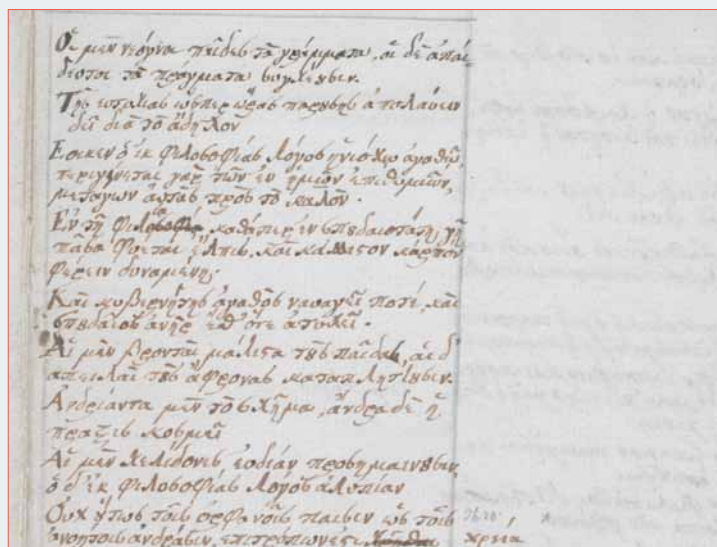 Οἱ μὲν νεόγνα παῖδες τὰ γράμματα, οἱ δὲ ἀπαί
δευτοι τὰ πράγματα συγχέουσιν.
Τῆς εὐτυχίας ὥσπερ ὥρας παρούσης ἀπολαύειν
δεῖ διὰ τὸ ἄδηλον
Ἔοικεν ὁ ἐκ φιλοσοφίας λόγος ἡνιόχῳ ἀγαθῷ,
περιγίνεται γὰρ τῶν ἐν ἡμῖν ἐπιθυμιῶν,
μετάγων αὐτὰς πρὸς τὸ καλὸν.
Ἐν τῇ φιλοσοφίᾳ, καθάπερ ἐν σπουδαιοτάτῃ γῇ
πᾶσα φύεται ἐλπὶς, καὶ κάλλιστον καρπὸν
φέρειν δυναμένη.
Καὶ κυβερνήτης ἀγαθὸς ναυαγεῖ ποτέ, καὶ
σπουδαῖος ἀνὴρ ἔσθ' ὅτε ἀτυχεῖ.
Αἱ μὲν βρονταὶ μάλιστα τοὺς παῖδας, αἱ δ'
ἀπειλαὶ τοὺς ἄφρονας καταπλήττουσιν.
Ἀνδριάντα μὲν τὸ σχῆμα, ἄνδρα δὲ ἡ
πρᾶξις κοσμεῖ
Αἱ μὲν χελιδόνες εὐδίαν προσημαίνουσιν,
ὁ δ' ἐκ φιλοσοφίας λόγος ἀλυπίαν
Οὐχ οὕτως τοῖς ὀρφανοῖς παισὶν ὡς τοῖς
ἀνοήτοις ἀνδράσιν, ἐπιτρόπων ἐστι χρεία